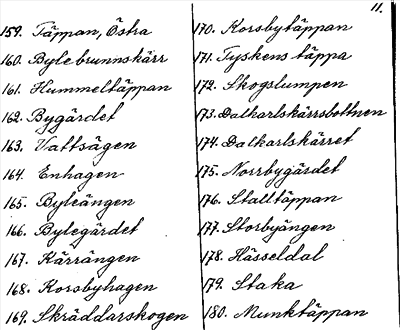 11.
159. Täppan, Östra
160. Bylebrunnskärr
161. Hummeltäppan
162. Bygärdet
163. Vattsägen
164. Enhagen
165. Byleängen
166. Bylegärdet
167. Kärrängen
168. Korsbyhagen
169. Skräddarskogen
170. Korsbytäppan
171. Tyskens täppa
172. Skogslumpen
173. Dalkarlskärrsbottnen
174. Dalkarlskärret
175. Norrbygärdet
176. Stalltäppan
177. Storbyängen
178. Hässeldal
179. Staka
180. Munktäppan